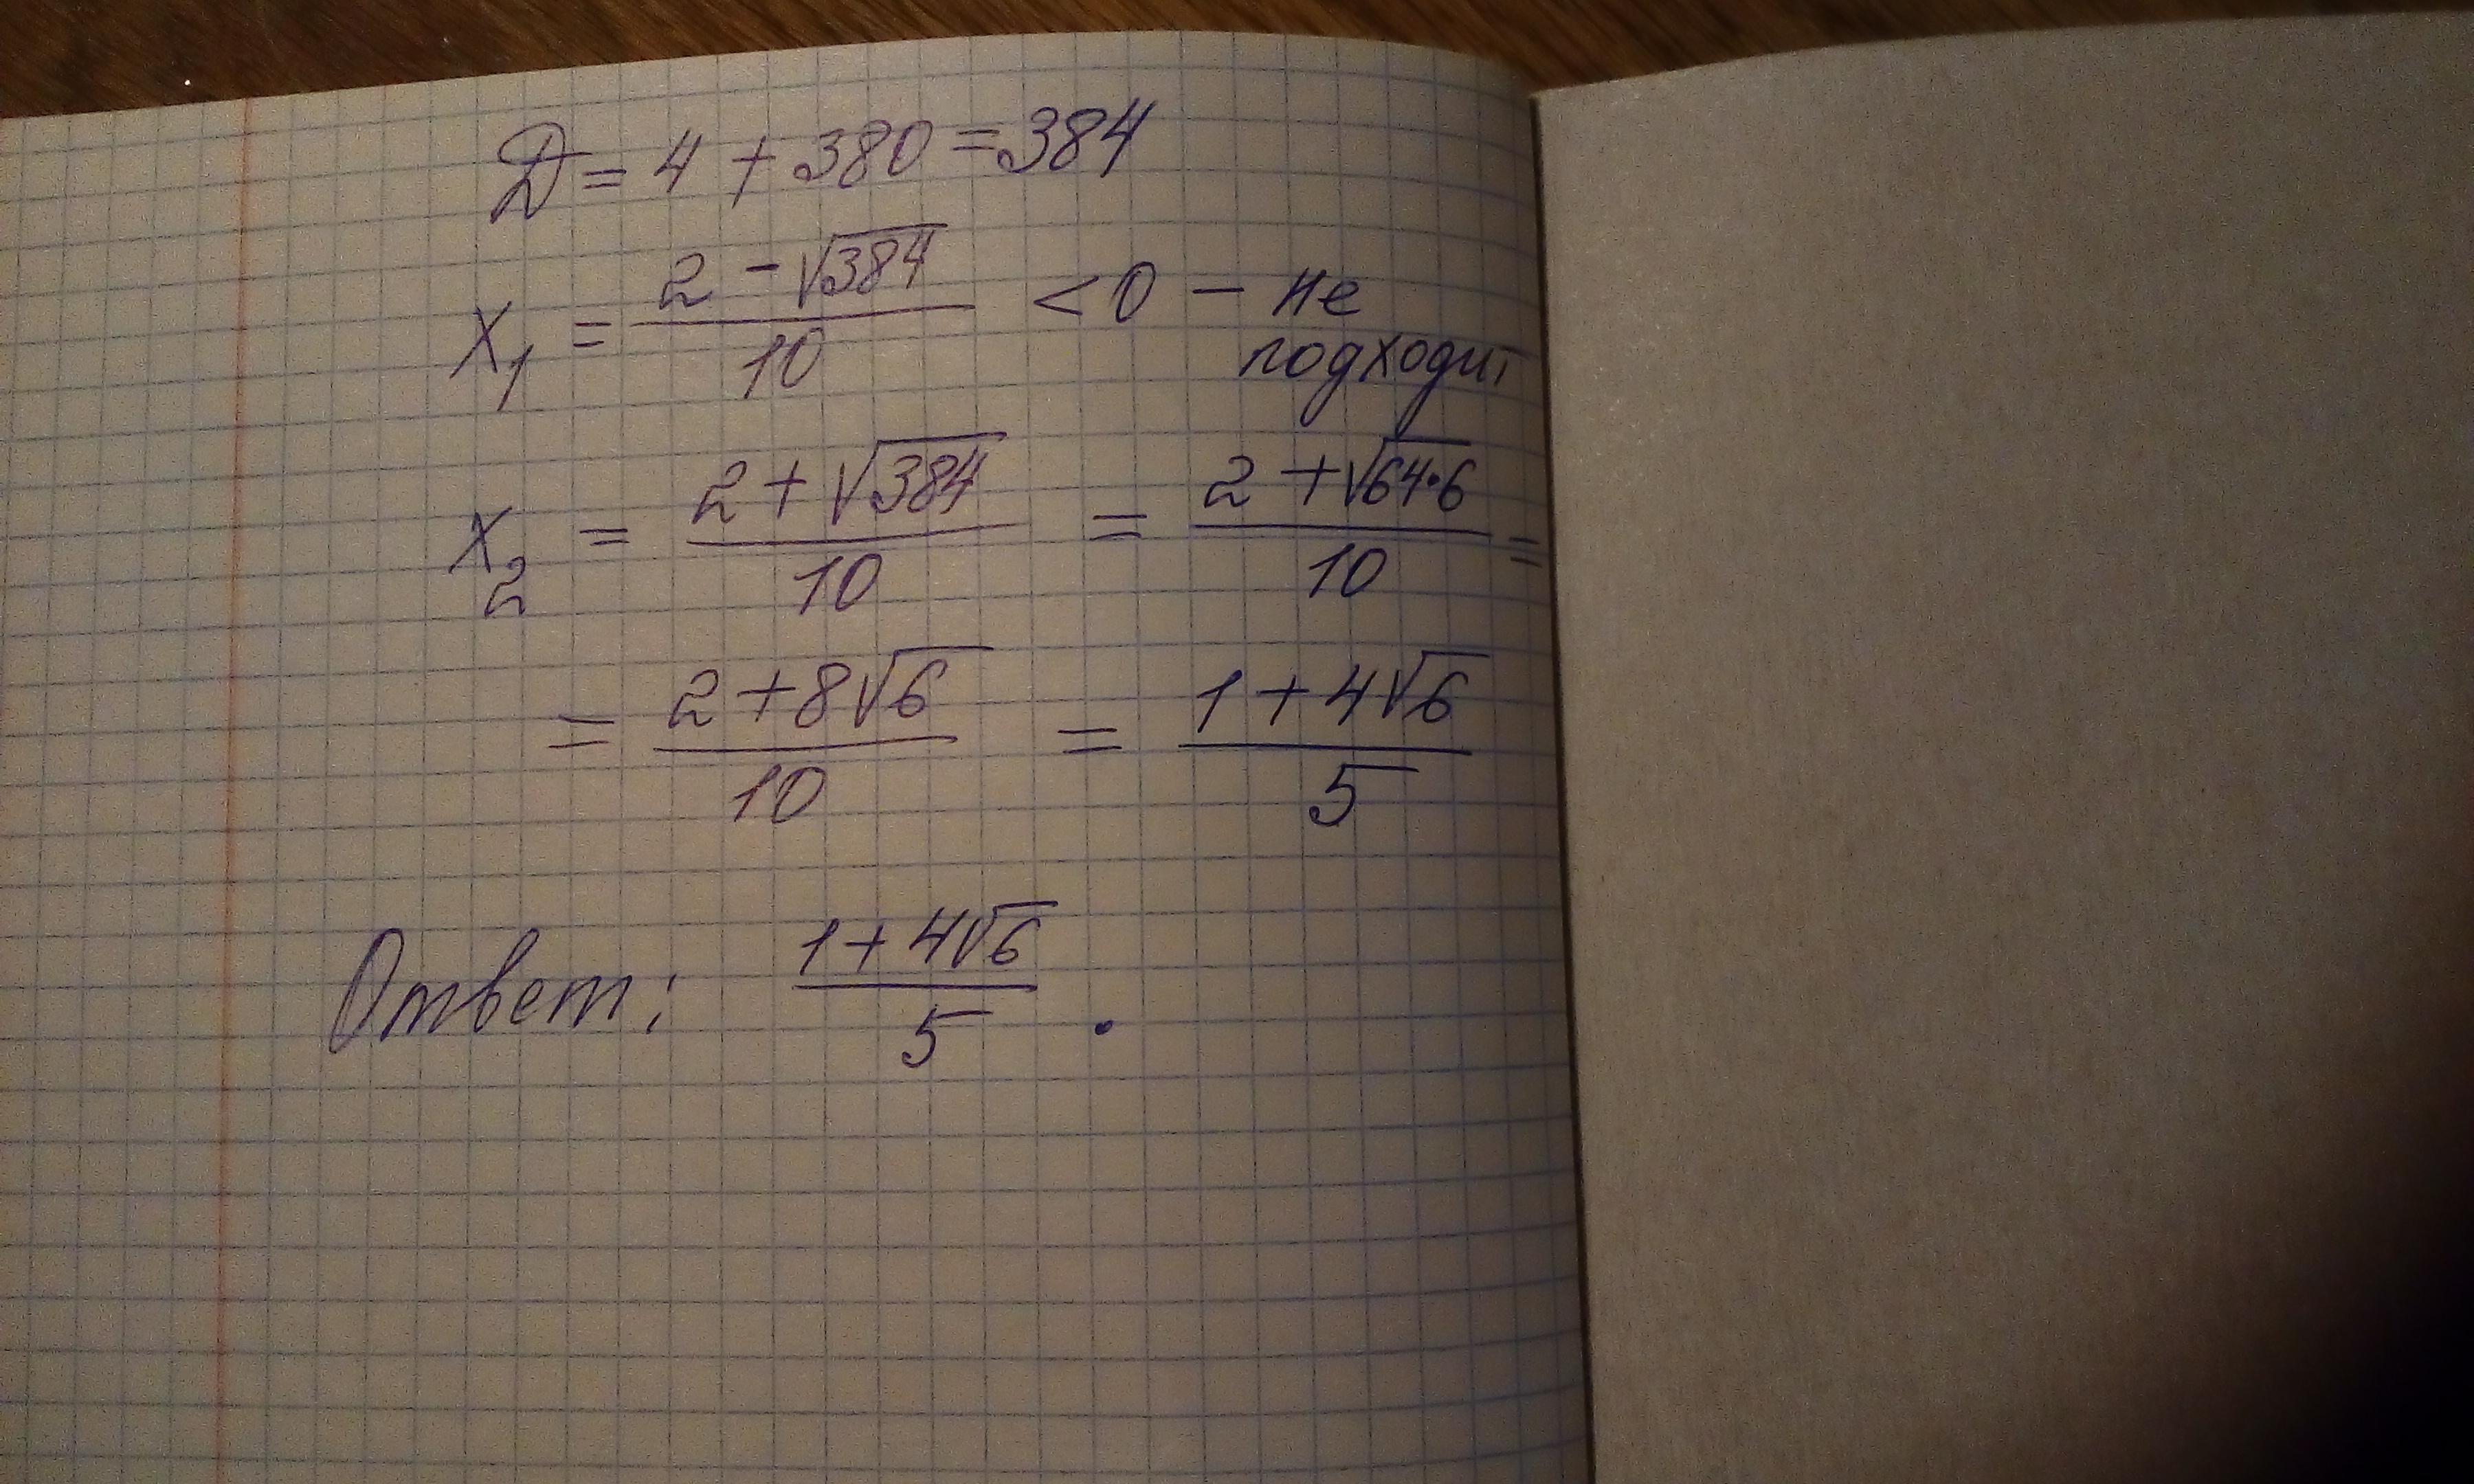 D = 4 + 380 = 384
x₁ = (2 - √384)/10 < 0 - не
подходит
x₂ = (2 + √384)/10 = (2 + √64·6)/10 =
= (2 + 8√6)/10 = (1 + 4√6)/5
Ответ: (1 + 4√6)/5 .